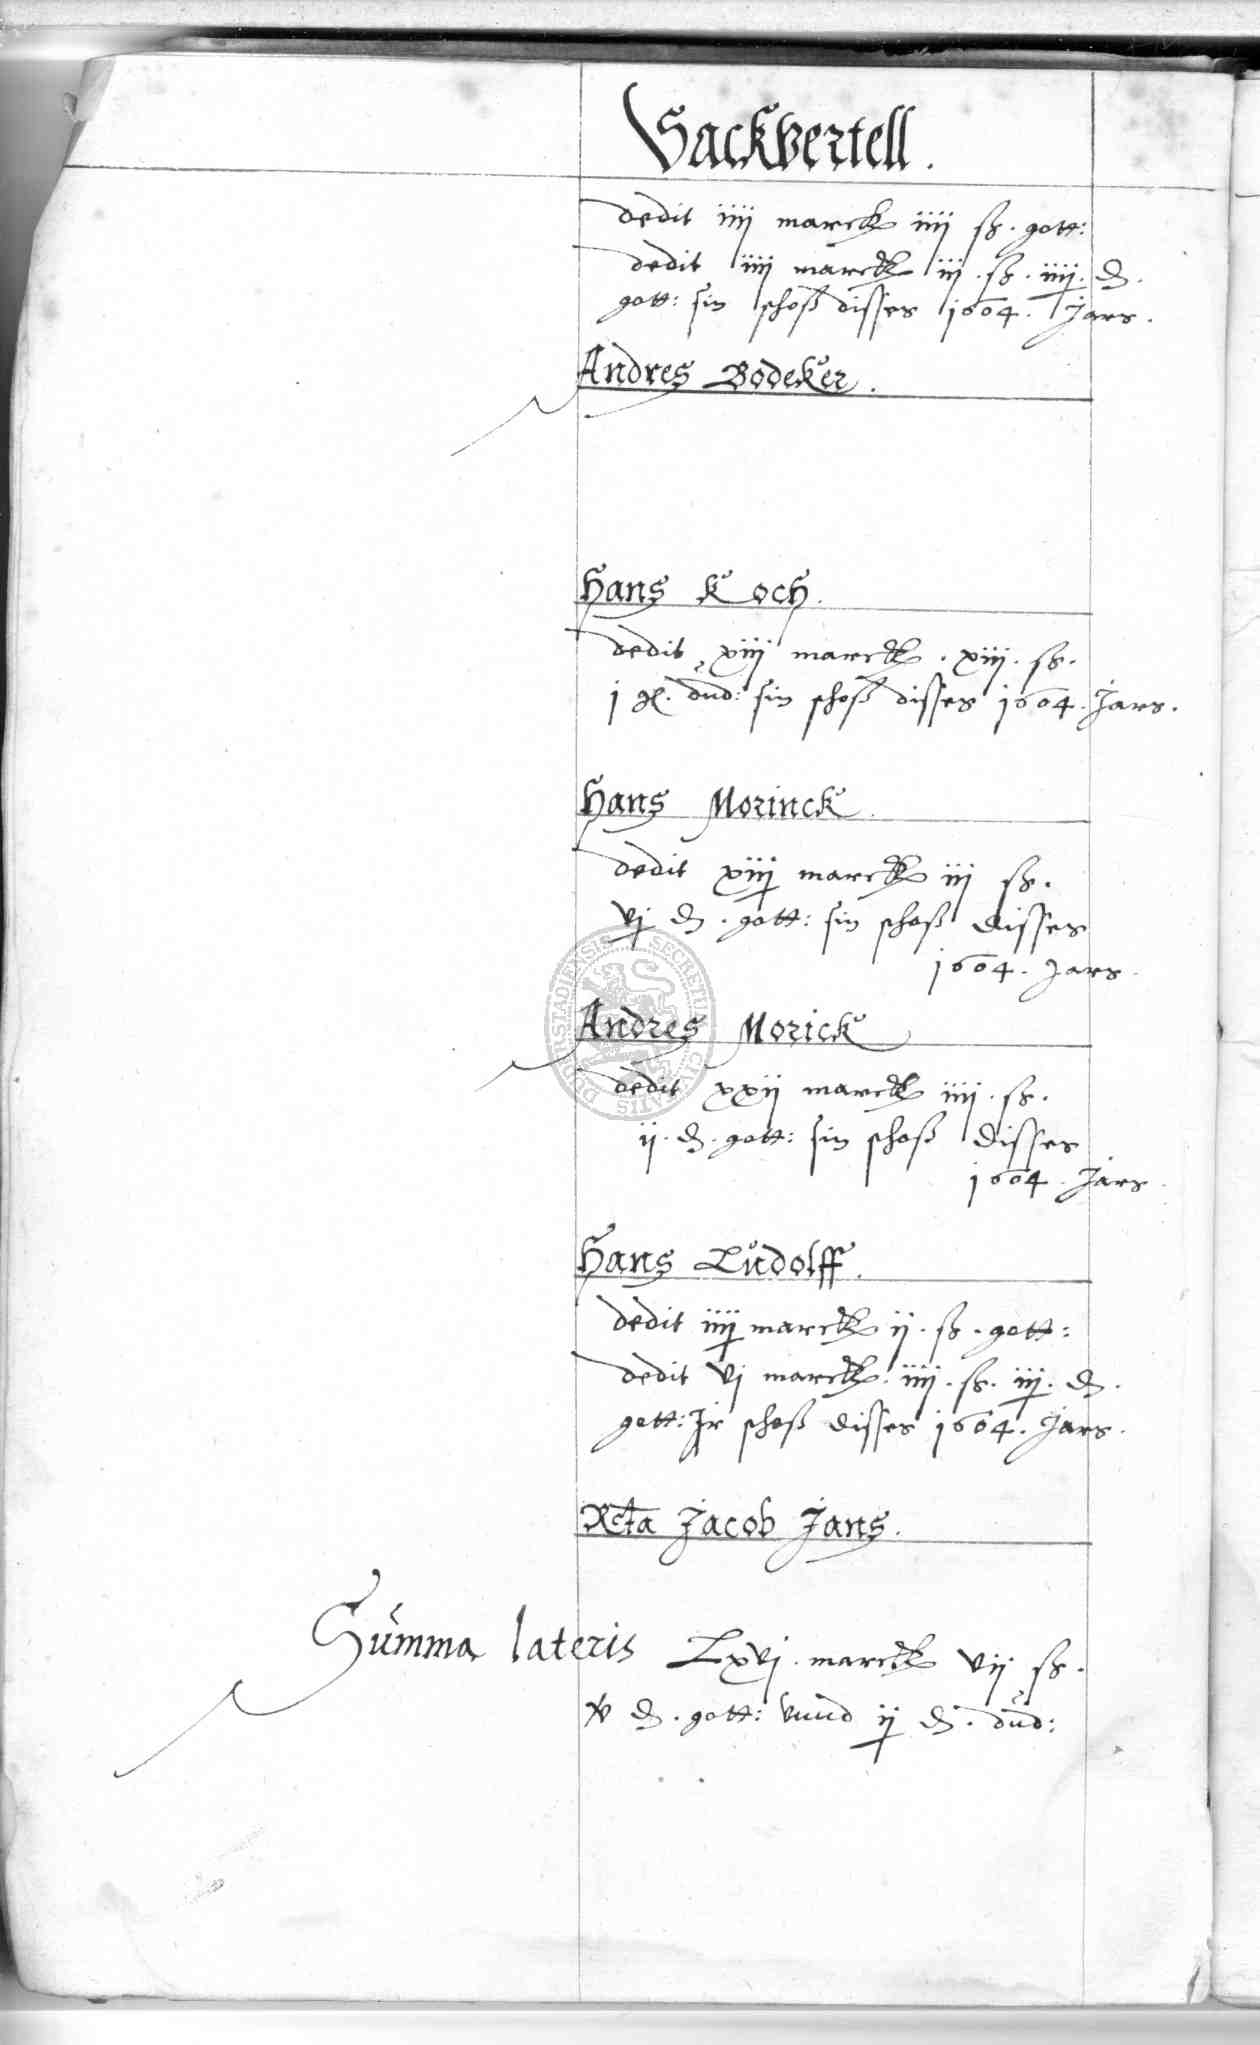 Sackvertell.
dedit iiij marck iiij ß. gott:
dedit iiij marck iij. ß. iiij. d.
gott: sin schoß disses 1604. Jars.
Andres Bodeker.
Hans Koch.
dedit xiij marck. xiij. ß.
j d. dud: sin schoß disses 1604. Jars.
Hans Morinck.
dedit xiij marck iij ß.
vj d. gott: sin schoß disses
1604. Jars.
Andres Morick
dedit xxij marck iiij. ß.
ij. d. gott: sin schoß disses
1604. Jars.
Hans Ludolff.
dedit iiij marck ij. ß. gott:
dedit vj marck. iiij. ß. iij. d.
gott: Jr schoß disses 1604. Jars.
Rcta Jacob Jans.
Summa lateris Lxvj. marck vij ß.
v d. gott: vnnd ij d. dud:
SECRETUM CIVITATIS DUDERSTADIENSIS